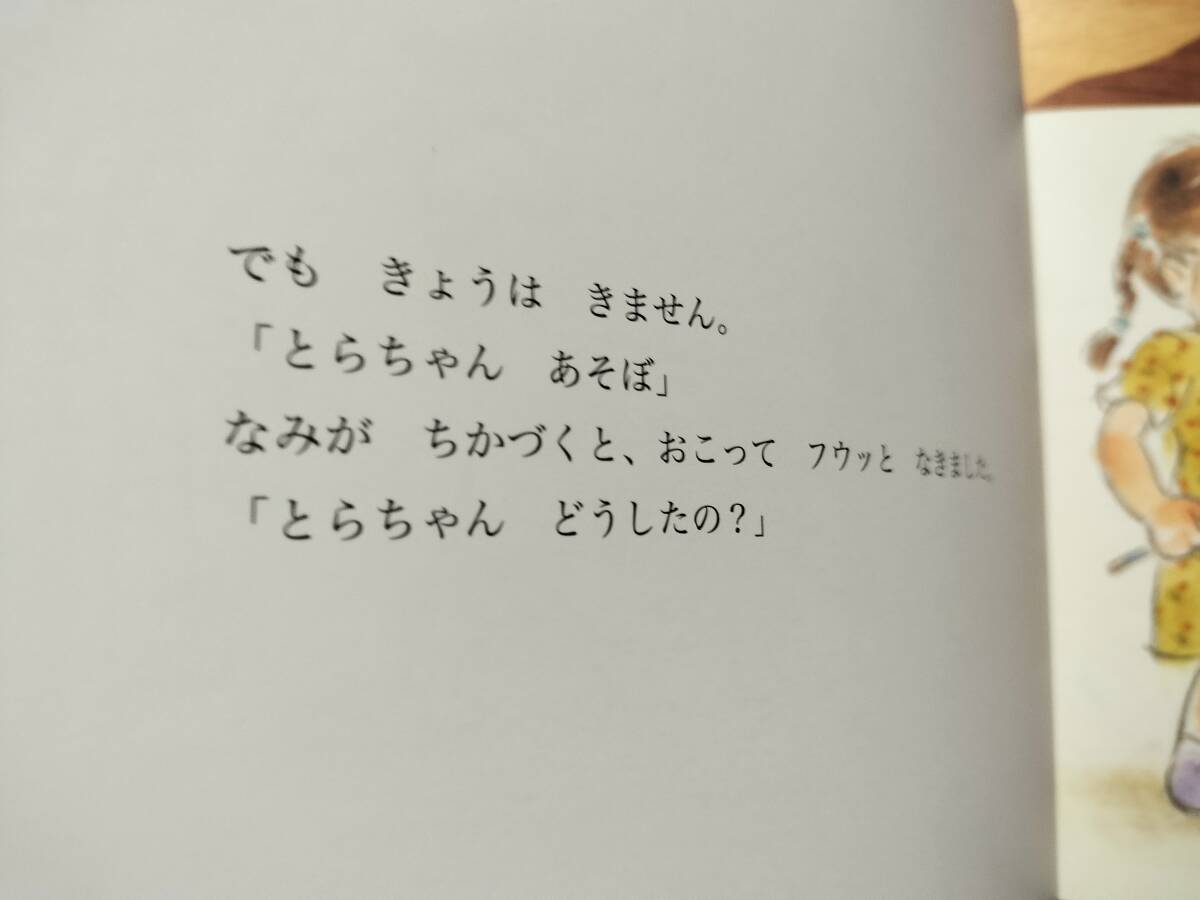 でも　きょうは　きません。
「とらちゃん　あそぼ」
なみが　ちかづくと、おこって　フウッと　なきました。
「とらちゃん　どうしたの？」